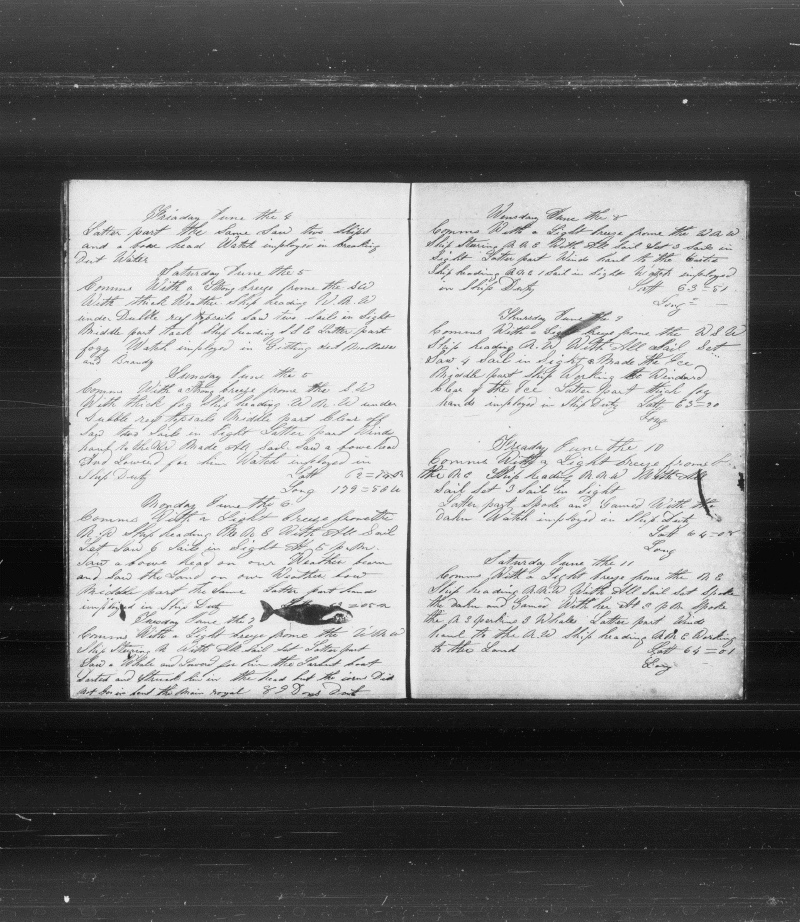 Friaday June the 4
Latter part the Same Saw two Ships
and a bow head Watch imployed in breaking
Out Water
Saturday June the 5
Comms With a Strong breeze frome the SW
With thick Weather Ship heading W.N.W
under Dubble reef topsails saw two Sail in Sight
Middle part tack Ship heading S S E Latter part
foggy Watch imployed in Gitting Out Mollasses
and Brandy
Sunday June the 5
Comms With a Strong breeze frome the S.W
With thick fog Ship heading W.N.W under
Dubble reef topsails Middle part Clear off
Saw two Sails in Sight Latter part Winds
haul to the Made All Sail Saw a bowe head
And Lowered for him Watch imployed in
Ship Duty Latt 62=
Long 179=
Monday June the 6
Comms With a Light breeze frome the
Ship heading With All Sail
Set Saw 6 Sails in Sight At 6 P.M.
Saw a bowe head on our Weather beam
and saw the Land on our Weather bow
Middle part the Same Latter part hands
imployed in Ship Duty
Tuesday June the 7
Comms With a Light breeze frome the W.N.W
Ship Stearing N With All Sail Set Latter part
Saw a Whale and Lowed for him the Larbord boat
darted and Struck him in the head but the iorns Did
not Go in bent the Main royal Out
Wensday June the 8
Comms With a Light breeze frome the W.N.W
Ship Stearing N.N.E With All Sail Set 3 Sails in
Sight Latter part Winds haul to the
Ship heading 1 Sail in Sight Watch imployed
in Ship Duty Latt 63=51
Long = —
Thursday June the 9
Comms With a Light breeze frome the W S W
Ship heading N.W With All Sail Set
Saw 4 Sail in Sight & Made the Ice
Middle part Ship Working the Windward
Clear of the Ice Latter part thick fog
hands imployed in Ship Duty Latt 63=30
Long
Friaday June the 10
Comms With a Light breeze frome
the N.E Ship heading With All
Sail Set 3 Sail in Sight
Latter part Spoke and Gamed With the
Watch imployed in Ship Duty
Latt 64=08
Long
Saturday June the 11
Comms With a Light breeze frome the N.E
Ship heading With All Sail Set Spoke
the and Gamed With her At 6 P.M Spoke
the 3 Whales Latter part Wind
haul to the N.W Ship heading N.N.E Working
to the Land Latt 64=01
Long